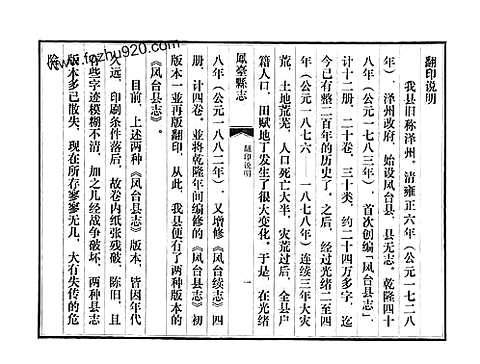 www.fozhu920.com
翻印说明
我县旧称泽州，清雍正六年（公元一七二八
年），泽州改府，始设凤台县，县无志。乾隆四十
八年（公元一七八三年），首次创编「凤台县志」，
计十二册，二十卷，三十类，约二十四万多字，迄
今已有整二百年的历史了。之后，经过光绪二至四
年（公元一八七六——一八七八年）连续三年大灾
荒，土地荒芜，人口死亡大半，灾荒过后，全县户
籍人口，田赋地丁发生了很大变化。于是，在光绪
鳳臺縣志
翻印说明
一
八年（公元一八八二年），又增修《凤台续志》四
册，计四卷。并将乾隆年间编修的《凤台县志》初
版本一並再版翻印，从此，我县便有了两种版本的
《凤台县志》。
目前，上述两种《凤台县志》版本，皆因年代
久远，印刷条件落后，故卷内纸张残破、陈旧，且
有些字迹模糊不清，加之几经战争破坏，两种县志
版本多已散失，现在所存寥寥无几，大有失传的危
险